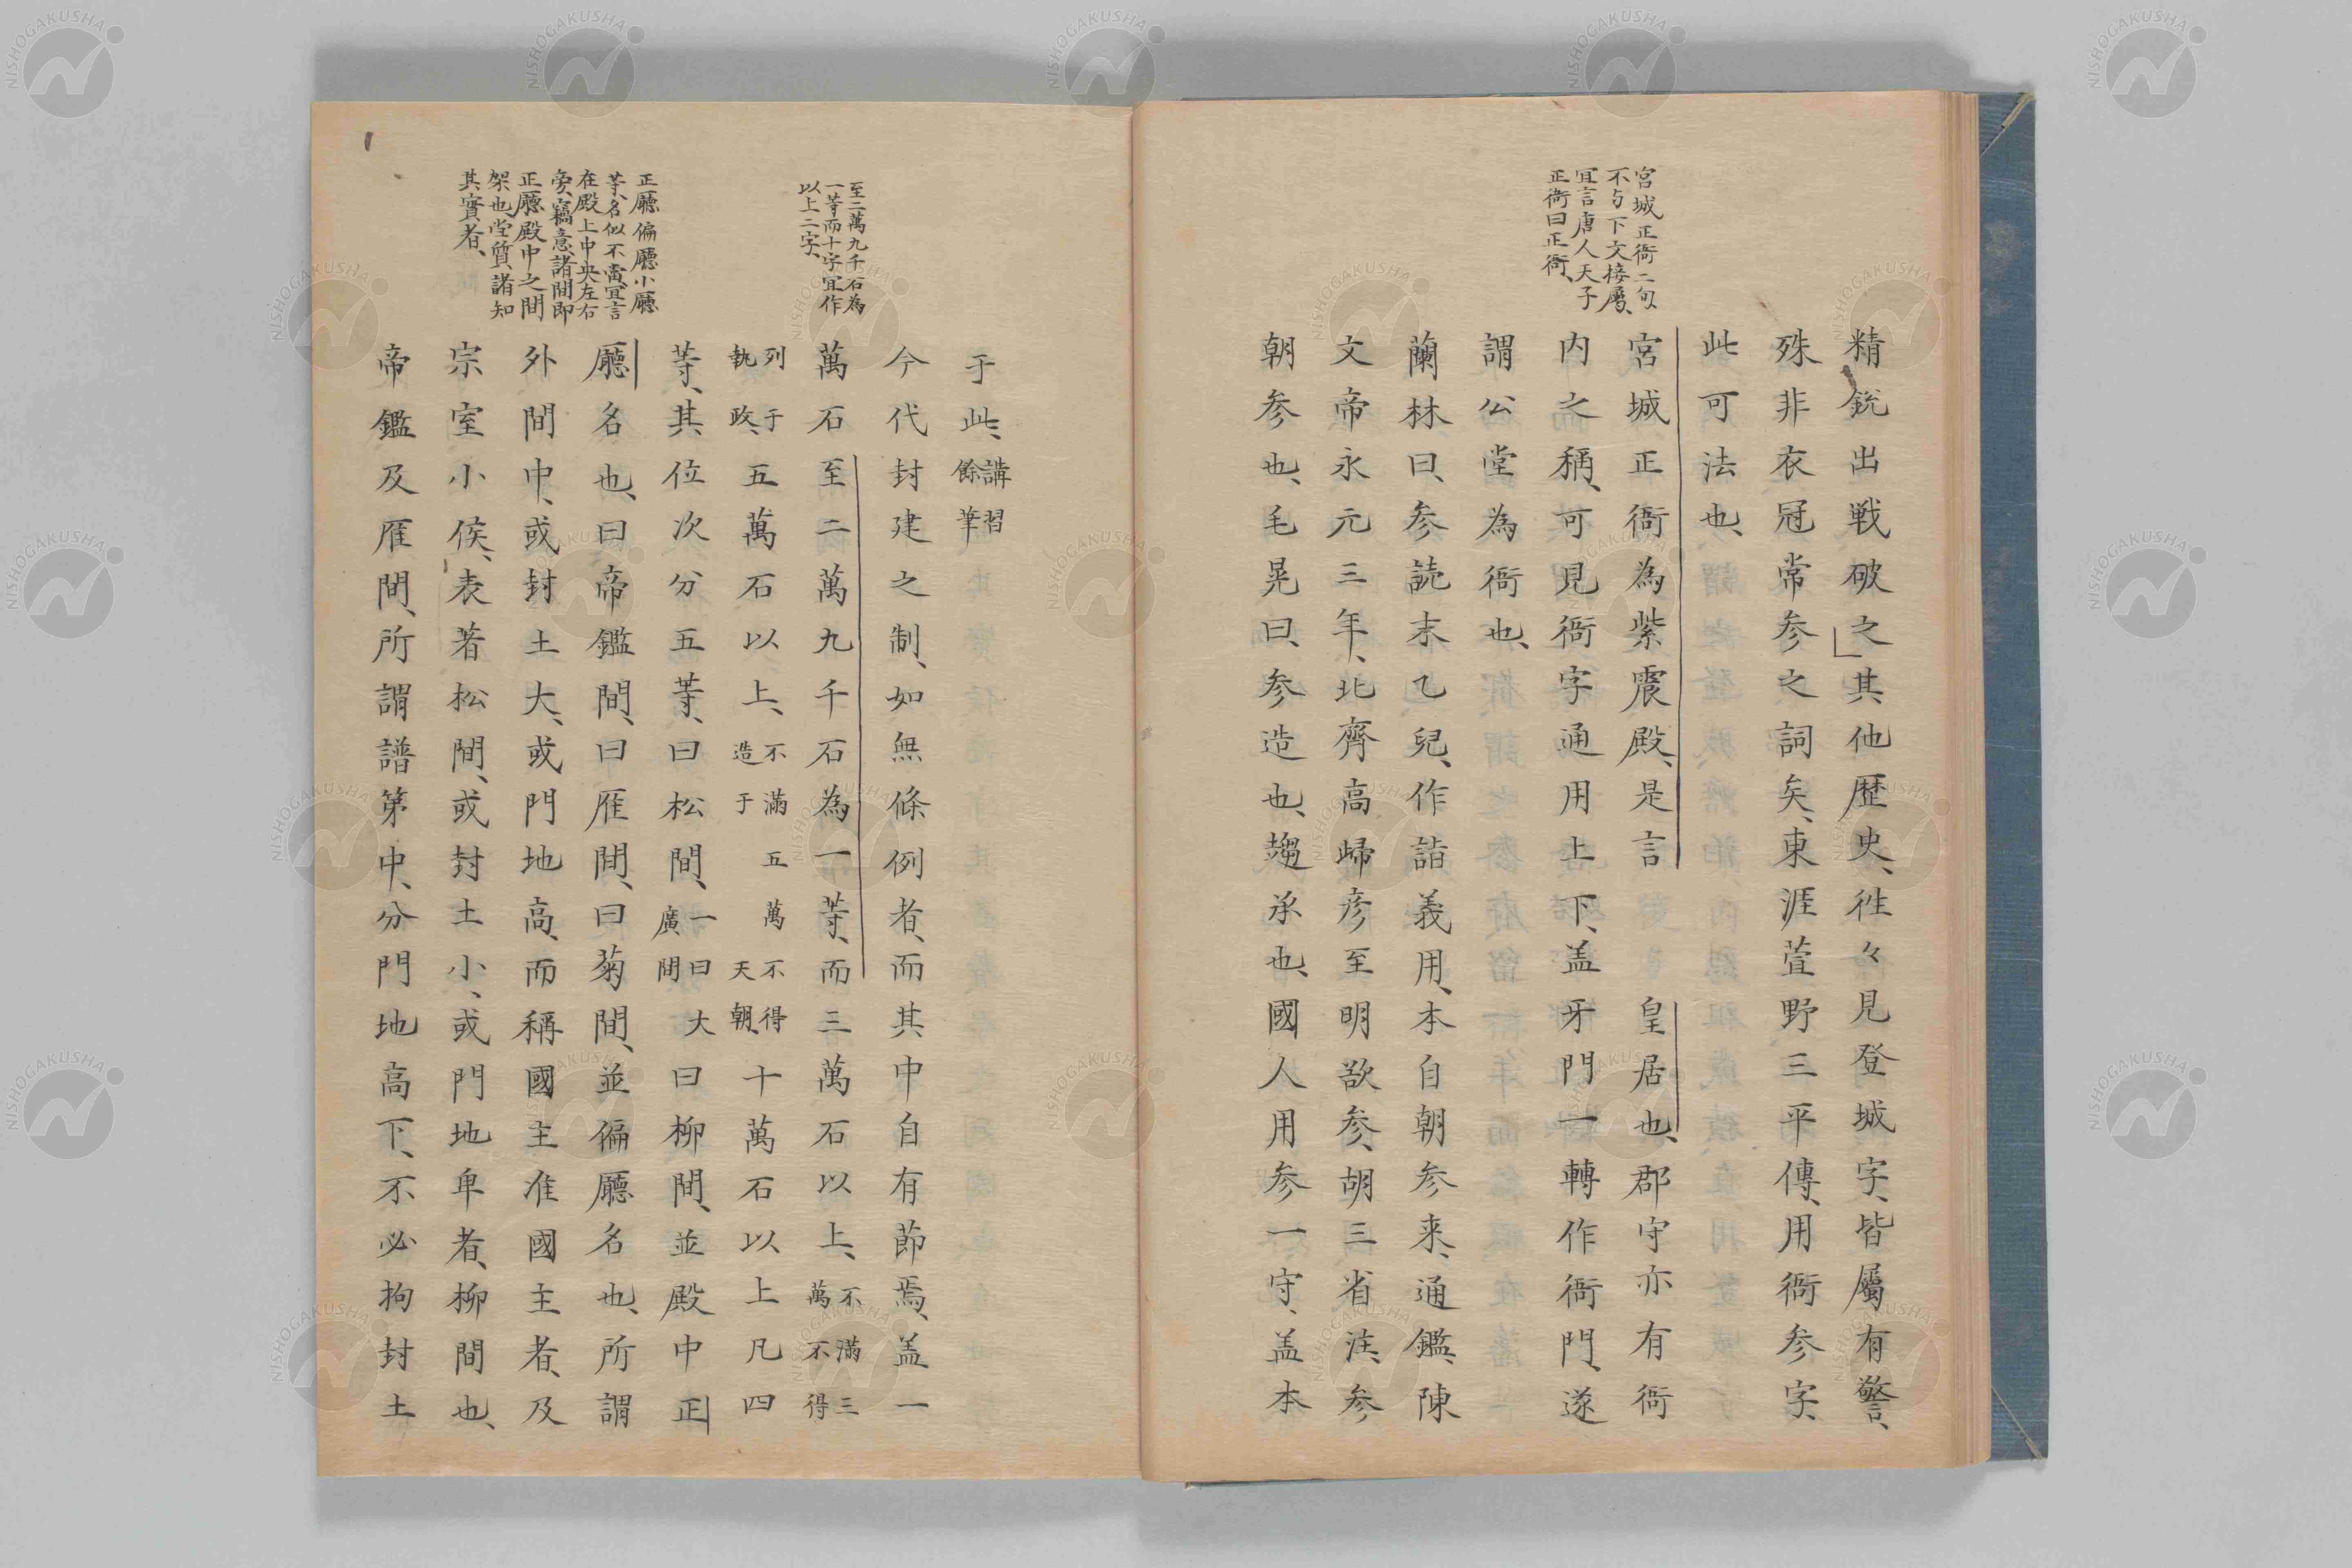 宮城正衙二句
不与下文接屬、
宜言唐人天子
正衙曰正衙、
精銳出戦破之其他歴史、徃々見登城字、皆屬有警、
殊非衣冠常参之詞矣、東涯萱野三平傳、用衙参字、
此可法也、
宮城正衙為紫震殿、是言　皇居也、郡守亦有衙
内之稱、可見衙字通用上下、盖牙門一轉作衙門、遂
謂公堂為衙也、
蘭林曰、参読末乙兒、作詣義用、本自朝参来、通鑑、陳
文帝永元三年、北齊高歸彦至明欲参、胡三省注、参
朝参也、毛晃曰、参造也、趨承也、國人用参一守、盖本
至二萬九千石為
一等而十字宜作
以上二字、
正廳偏廳小廳
等、名似不當宜言
在殿上中央左右
旁、竊意諸間即
正廳殿中之間
架也堂質諸知
其實者、
于此、講習餘筆
今代封建之制、如無條例者、而其中自有節焉、盖一
萬石至二萬九千石為一等、而三萬石以上、不滿三萬不得
列于執政、五萬石以上、不滿五萬不得造于天朝、十萬石以上凡四
等、其位次分五等、曰松間、一曰大廣間曰柳間、並殿中正
廳名也、曰帝鑑間、曰雁間、曰菊間、並偏廳名也、所謂
外間中、或封土大、或門地高、而稱國主准國主者、及
宗室小侯、表著松間、或封土小、或門地卑者、柳間也、
帝鑑及雁間、所謂譜第中、分門地高下、不必拘封土